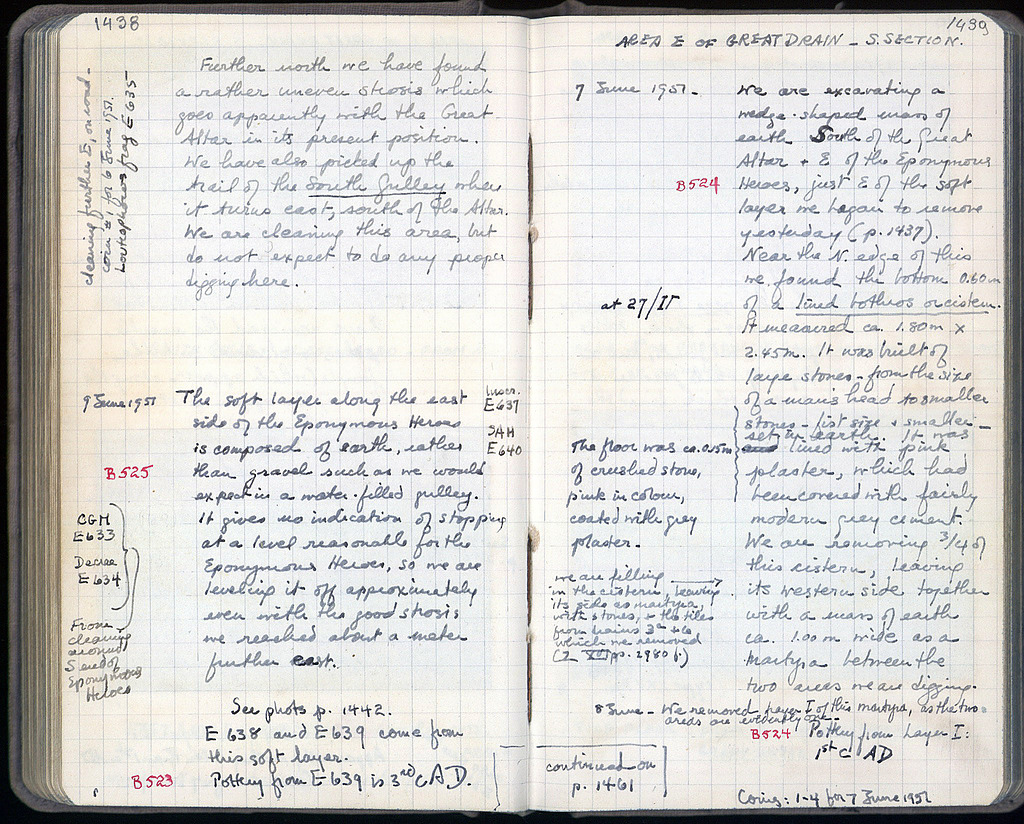 1438
cleaning further E, on road -
coin #1 for 6 June 1951.
Loutrophoros frag E 635
Further north we have found
a rather uneven strosis which
goes apparently with the Great
Altar in its present position.
We have also picked up the
trail of the South Gulley where
it turns east, south of the Altar.
We are cleaning this area, but
do not expect to do any proper
digging here.
9 June 1951
The soft layer along the east
side of the Eponymous Heroes
is composed of earth, rather
than gravel such as we would
expect in a water-filled gulley.
It gives no indication of stopping
at a level reasonable for the
Eponymous Heroes, so we are
leveling it off approximately
even with the good strosis
we reached about a meter
further east.
Inscr.
E 637
SAH
E 640
B 525
CGH
E 633
Decree
E 634
From
cleaning
around
S end of
Eponymous
Heroes
See photo p. 1442.
E 638 and E 639 come from
this soft layer.
B 523
Pottery from E 639 is 3rd c AD.
1439
AREA E OF GREAT DRAIN - S. SECTION.
7 June 1951 -
We are excavating a
wedge-shaped mass of
earth South of the Great
Altar + E of the Eponymous
B 524
Heroes, just E of the soft
layer we began to remove
yesterday (p. 1437).
Near the N. edge of this
we found the bottom 0.60 m
at 27/ΙΓ
of a lined bothros or cistern.
It measured ca. 1.80 m x
2.45 m. It was built of
large stones - from the size
of a man's head to smaller
stones - fist size + smaller -
set in earth. It was
lined with pink
plaster, which had
been covered with fairly
modern grey cement.
We are removing 3/4 of
this cistern, leaving
its western side together
with a mass of earth
ca. 1.00 m wide as a
martyra between the
two areas we are digging.
The floor was ca. 0.15m
of crushed stone,
pink in colour,
coated with grey
plaster.
we are filling
in the cistern, leaving
its side as martyra,
with stones, + the tiles
from drains
which we removed
pp. 2980 f.)
8 June - We removed layer I of this martyra, as the two
areas are evidently one.
B 524
Pottery from Layer I:
1st C AD
continued on
p. 1461
Coins: 1-4 for 7 June 1951